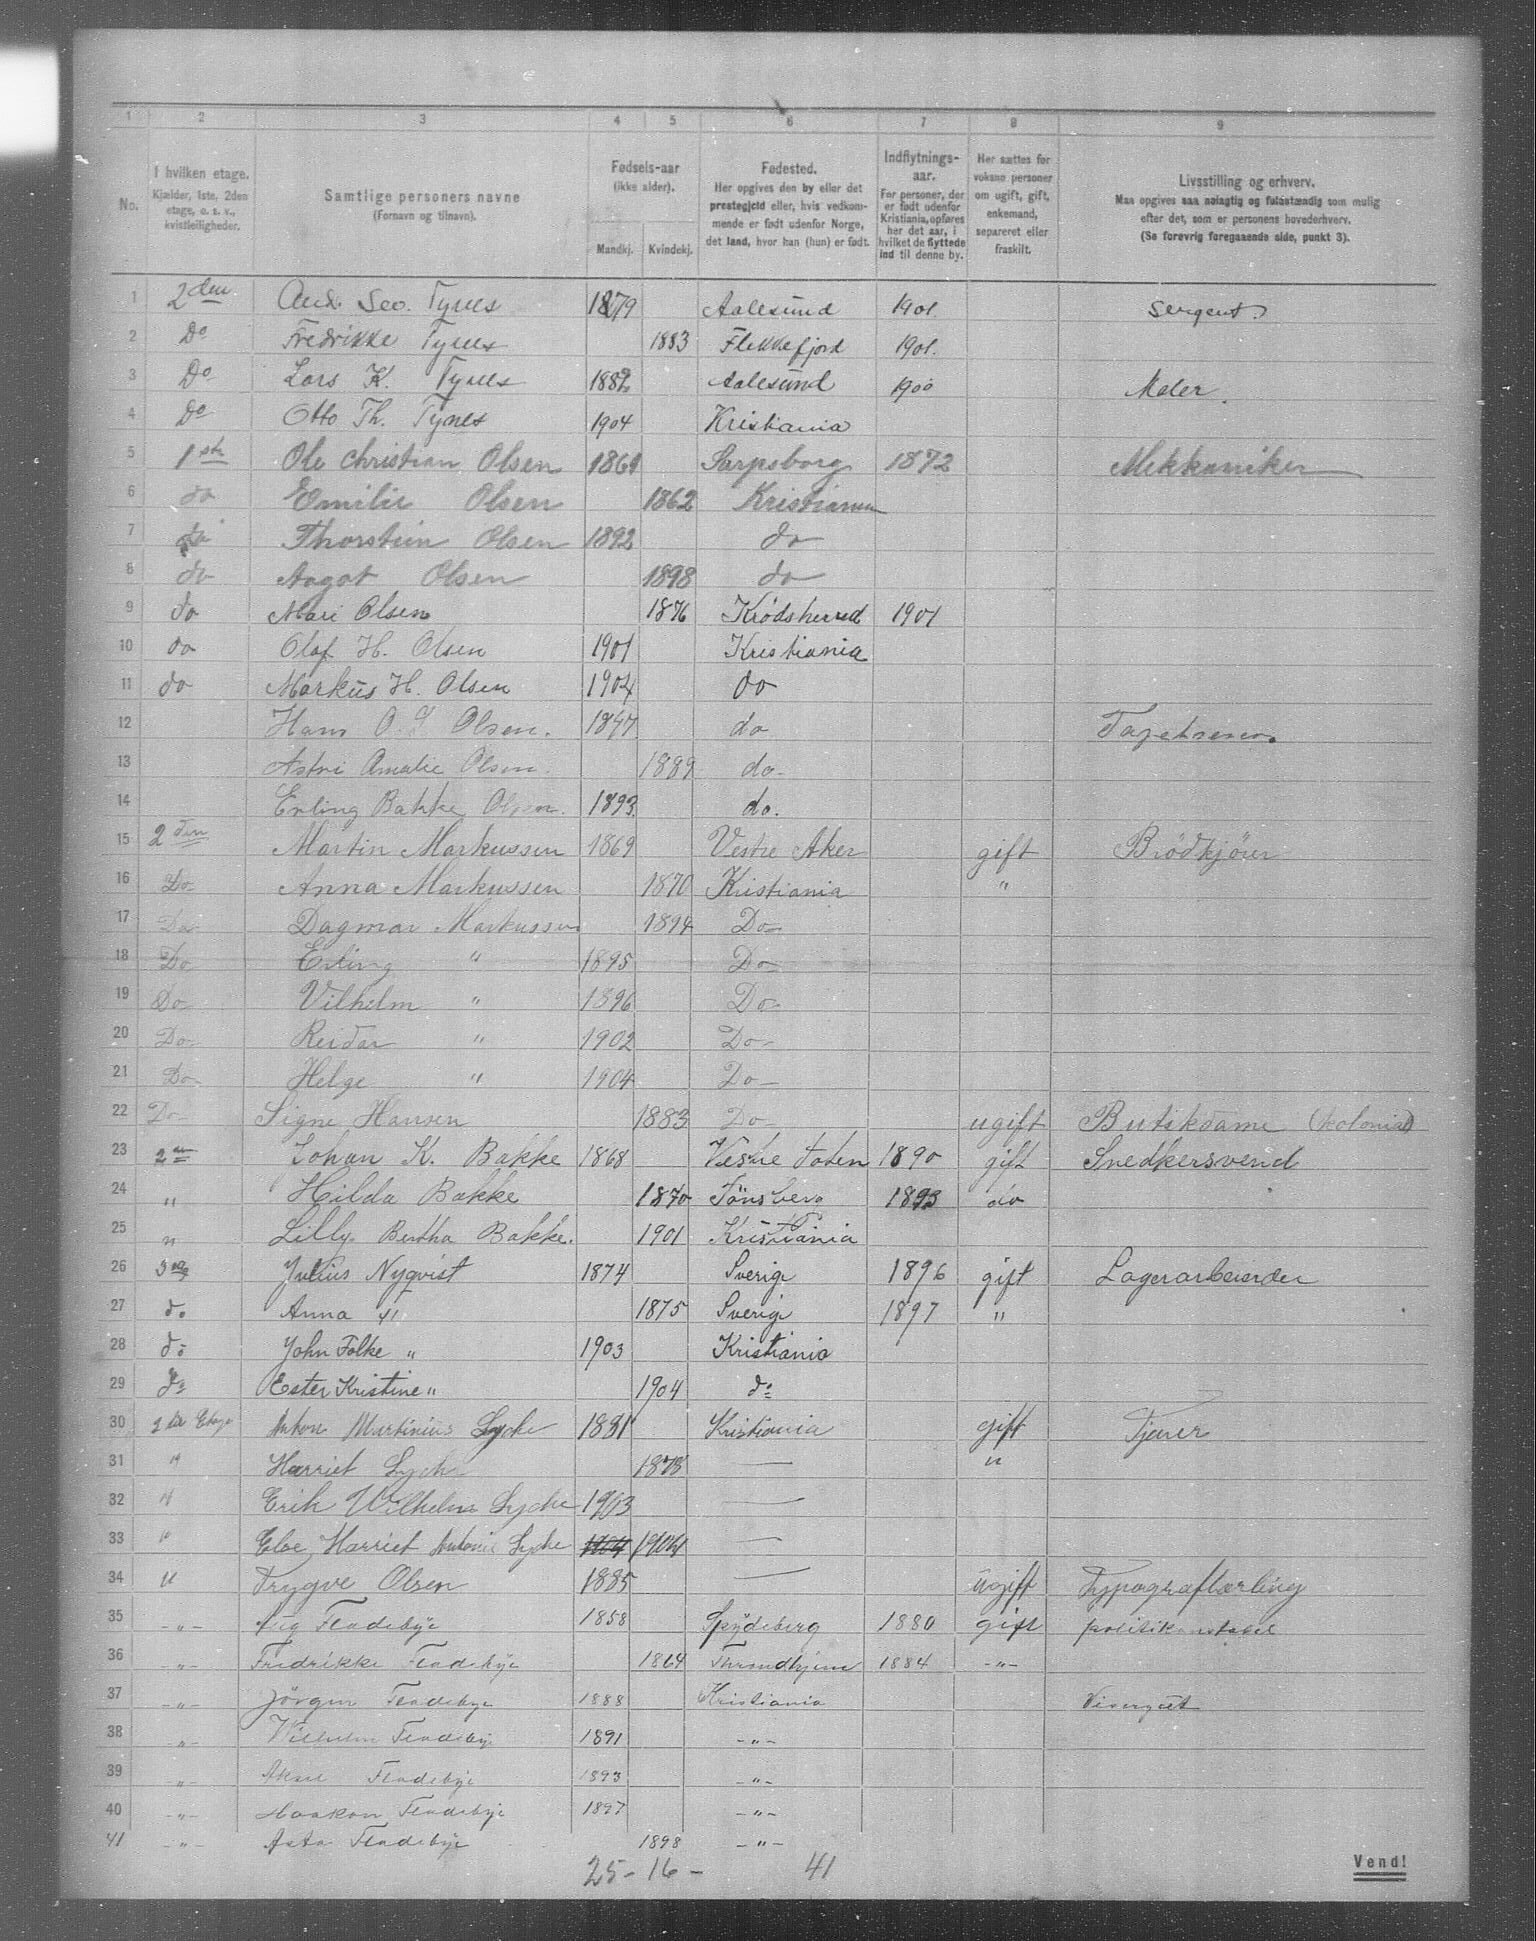 1 2 3 4 5 6 7 8 9
No.
I hvilken etage.
Kjælder, 1ste, 2den
etage, o. s. v.,
kvistleiligheder.
Samtlige personers navne
(Fornavn og tilnavn).
Fødsels-aar
(ikke alder).
Mandkj. Kvindekj.
Fødested.
Her opgives den by eller det
prestegjeld eller, hvis vedkom-
mende er født udenfor Norge,
det land, hvor han (hun) er født.
Indflytnings-
aar.
For personer, der
er født udenfor
Kristiania, opføres
her det aar, i
hvilket de flyttede
ind til denne by.
Her sættes for
voksne personer
om ugift, gift,
enkemand,
separeret eller
fraskilt.
Livsstilling og erhverv.
Maa opgives saa nøiagtig og fuldstændig som mulig
efter det, som er personens hovederhverv.
(Se forøvrig foregaaende side, punkt 3).
1 2den Tynes 1879 Aalesund 1901. Sergent.
2 Do Fredrikke Tynes 1883 Flekkefjord 1901.
3 Do Lars K. Tynes 1882 Aalesund 1900 Maler.
4 Do Otto Th. Tynes 1904 Kristiania
5 1ste Ole Christian Olsen 1861 Sarpsborg 1872 Mekkaniker
6 do Emilie Olsen 1862 Kristiania
7 do Thorstein Olsen 1892 do
8 do Aagot Olsen 1898 do
9 do Mari Olsen 1876 Krødsherred 1901
10 do Olaf H. Olsen 1901 Kristiania
11 do Markus H. Olsen 1904 do
12 Hans O. Olsen. 1847 do Tapetserer.
13 Astri Amalie Olsen. 1889 do-
14 Erling Bakke Olsen. 1893 do.
15 2den Martin Markussen 1869 Vestre Aker gift Brødkjører
16 Do Anna Markussen 1870 Kristiania "
17 Do Dagmar Markussen 1894 Do-
18 Do Erling " 1895 Do-
19 Do Vilhelm " 1896 Do-
20 Do- Reidar " 1902 Do-
21 Do- Helge " 1904 Do-
22 Do- Signe Hansen 1883 Do- ugift Butikdame (kolonial)
23 2en Johan K. Bakke 1868 Vestre Toten 1890 gift Snedkersvend
24 " Hilda Bakke 1870 Tönsberg 1893 do
25 " Lilly Bertha Bakke. 1901 Kristiania
26 3die Julius Nyqvist 1874 Sverige 1896 gift Lagerarbeider
27 do Anna " 1875 Sverige 1897 "
28 do John Folke " 1903 Kristiania
29 do Ester Kristine " 1904 do
30 2der Etage Anton Martinius Lycke 1881 Kristiania gift Tjener
31 " Harriet Lycke 1878 — "
32 " Erik Wilhelm Lycke 1903 —
33 " Harriet Antonie Lycke 1904 1904 —
34 " Trygve Olsen 1885 — ugift Typograflærling
35 -"- Aug Fladebye 1858 Spydeberg 1880 gift politikonstabel
36 -"- Fredrikke Fladebye 1864 Throndhjem 1884 -"-
37 -"- Jörgen Fladebye 1888 Kristiania Visergut
38 -"- Wilhelm Fladebye 1891 -"-
39 -"- Aksel Fladebye 1893 -"-
40 -"- Haakon Fladebye 1897 -"-
41 -"- Asta Fladebye 1898 -"-
25 - 16 - 41
Vend!